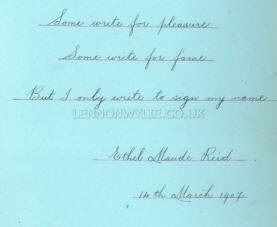 Some write for pleasure
Some write for fame
But I only write to sign my name
LENNONWYLIE.CO.UK
Ethel Maude Reid
14th March 1907.